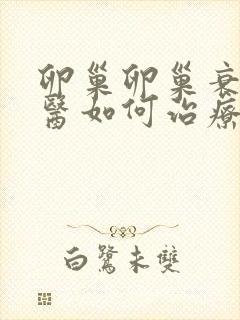 卵巢卵巢衰
醫如何治療
白鷺未雙